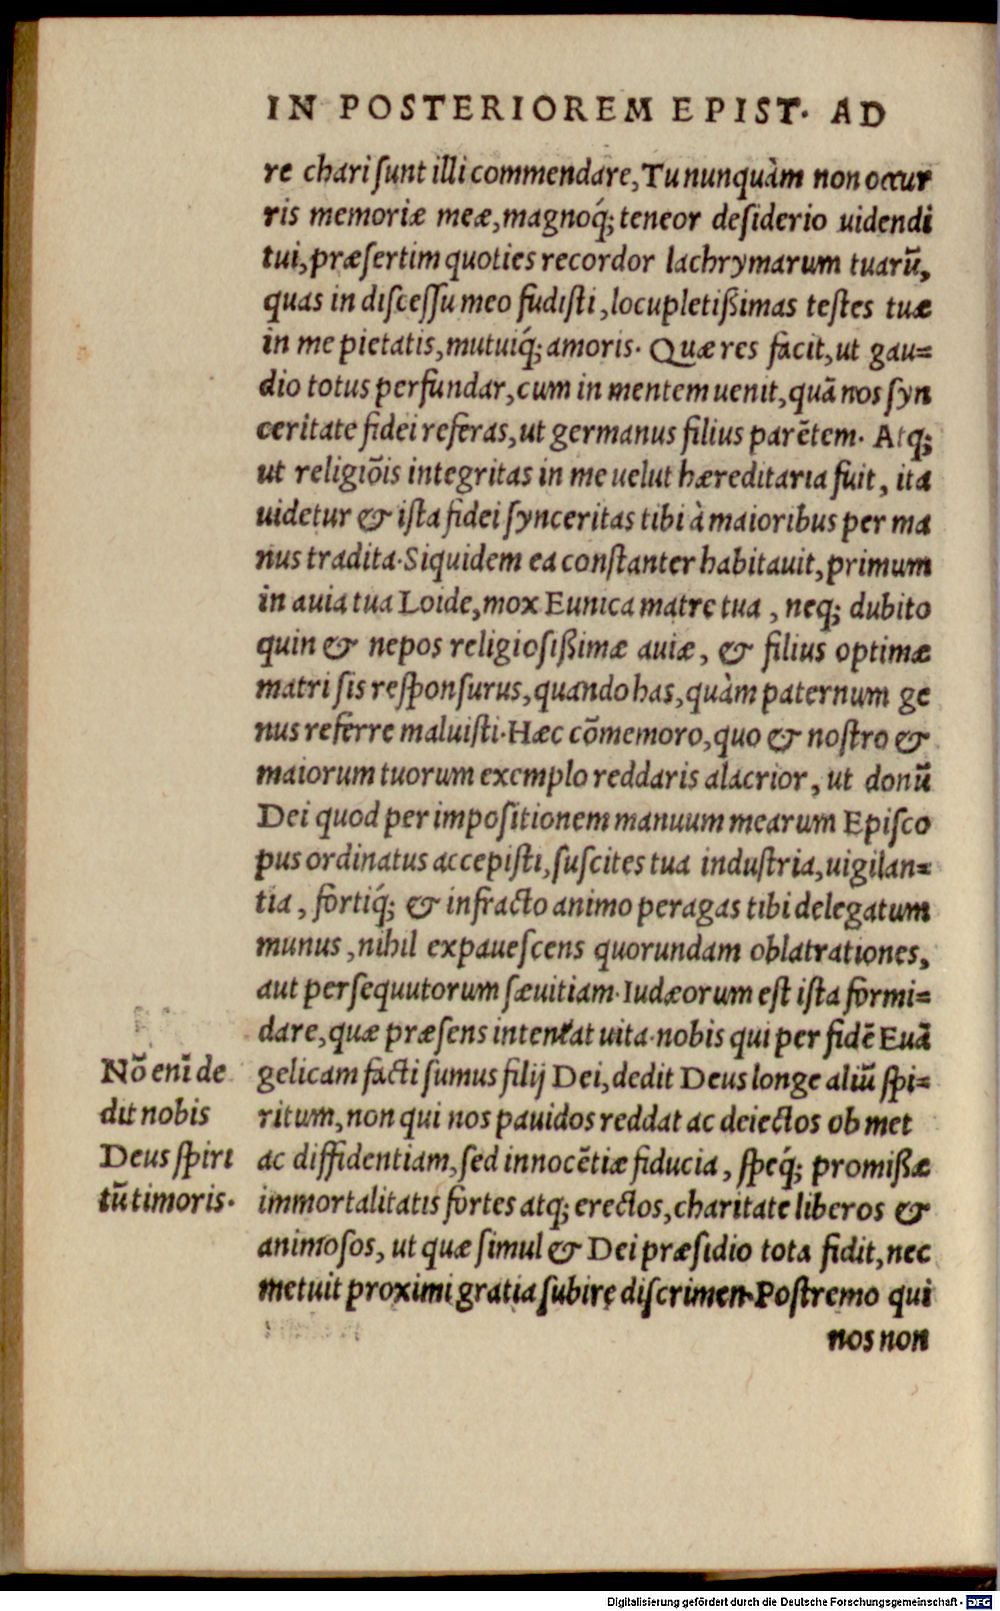 IN POSTERIOREM EPIST. AD
re chari sunt illi commendare, Tu nunquàm non occur
ris memoriæ meæ, magnoq́; teneor desiderio uidendi
tui, præsertim quoties recordor lachrymarum tuarũ,
quas in discessu meo fudisti, locupletißimas testes tuæ
in me pietatis, mutuiq́; amoris. Quæ res facit, ut gau=
dio totus perfundar, cum in mentem uenit, quã nos syn
ceritate fidei referas, ut germanus filius parẽtem. Atq;
ut religiõis integritas in me uelut hæreditaria fuit, ita
uidetur & ista fidei synceritas tibi à maioribus per ma
nus tradita. Siquidem ea constanter habitauit, primum
in auia tua Loide, mox Eunica matre tua, neq; dubito
quin & nepos religiosißimæ auiæ, & filius optimæ
matri sis responsurus, quando has, quàm paternum ge
nus referre maluisti. Hæc cõmemoro, quo & nostro &
maiorum tuorum exemplo reddaris alacrior, ut donũ
Dei quod per impositionem manuum mearum Episco
pus ordinatus accepisti, suscites tua industria, uigilan=
tia, fortiq́; & infracto animo peragas tibi delegatum
munus, nihil expauescens quorundam oblatrationes,
aut persequutorum sæuitiam. Iudæorum est ista formi=
dare, quæ præsens intentat uita. nobis qui per fidẽ Euã
gelicam facti sumus filij Dei, dedit Deus longe aliũ spi=
ritum, non qui nos pauidos reddat ac deiectos ob met
ac diffidentiam, sed innocẽtiæ fiducia, speq́; promißæ
immortalitatis fortes atq; erectos, charitate liberos &
animosos, ut quæ simul & Dei præsidio tota fidit, nec
metuit proximi gratia subire discrimen. Postremo qui
nos non
Nõ enĩ de
dit nobis
Deus spiri
tũ timoris.
Digitalisierung gefördert durch die Deutsche Forschungsgemeinschaft - DFG